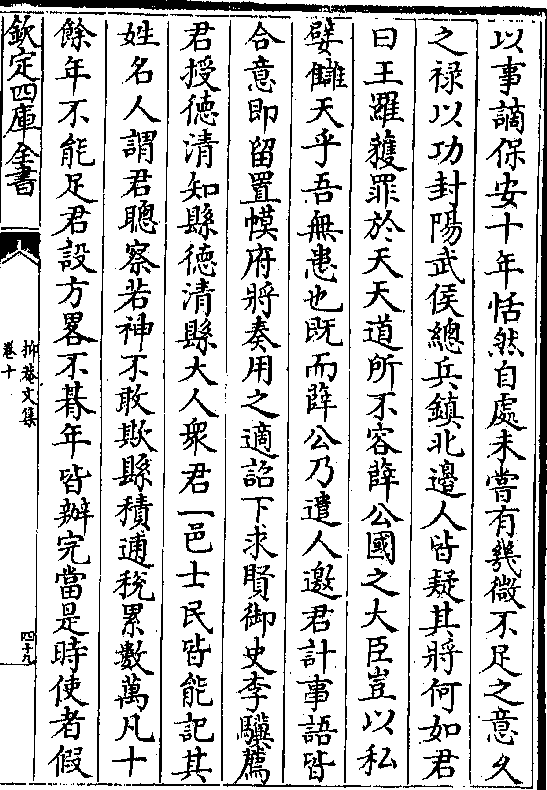 以事謫保安十年恬然自處未嘗有幾微不足之意久
之禄以功封陽武侯總兵鎮北邊人皆疑其將何如君
曰王羅蘓罪於天天道所不容薛公國之大臣豈以私
嬖讎天乎吾無患也既而薛公乃遣人邀君計事語皆
合意即留置幙府將奏用之適詔下求賢御史李驥薦
君授徳清知縣徳清縣大人衆君一邑士民皆能記其
姓名人謂君聰察若神不敢欺縣積逋稅累數萬凡十
餘年不能足君設方畧不朞年皆辦完當是時使者假
欽定四庫全書
抑菴文集
卷十
四十九